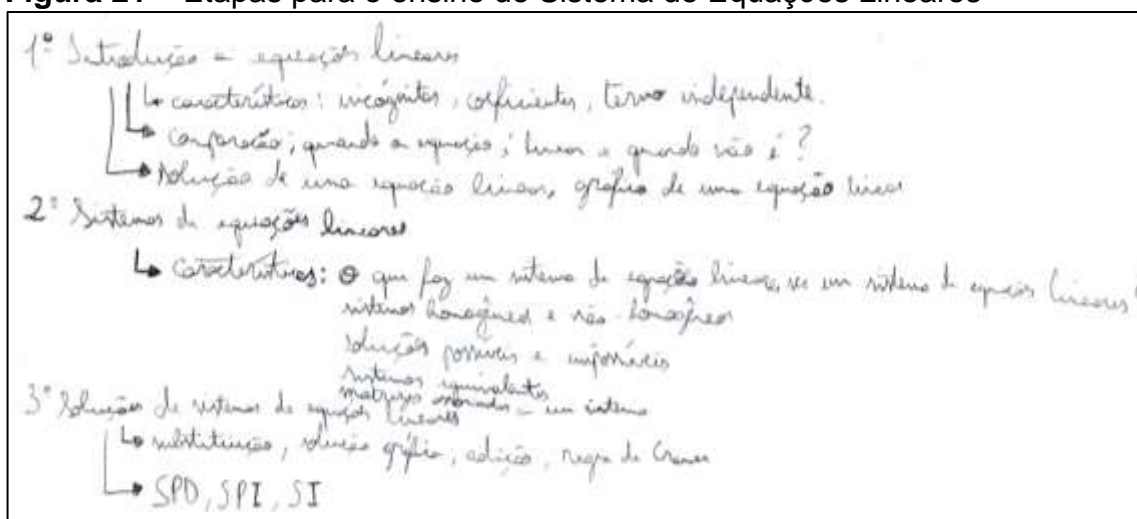 Figura 21 – Etapas para o ensino de Sistema de Equações Lineares
1º Introdução a equações lineares
características: incógnitas, coeficientes, termo independente.
comparação; quando a equação é linear e quando não é?
solução de uma equação linear, gráfico de uma equação linear
2º Sistemas de equações lineares
características: O que faz um sistema de equações lineares, ser um sistema de equações lineares?
sistemas homogêneos e não-homogêneos
soluções possíveis e impossíveis
sistemas equivalentes
matrizes associadas a um sistema
3º Solução de sistemas de equações lineares
substituição, solução gráfica, adição, regra de Cramer
SPD, SPI, SI